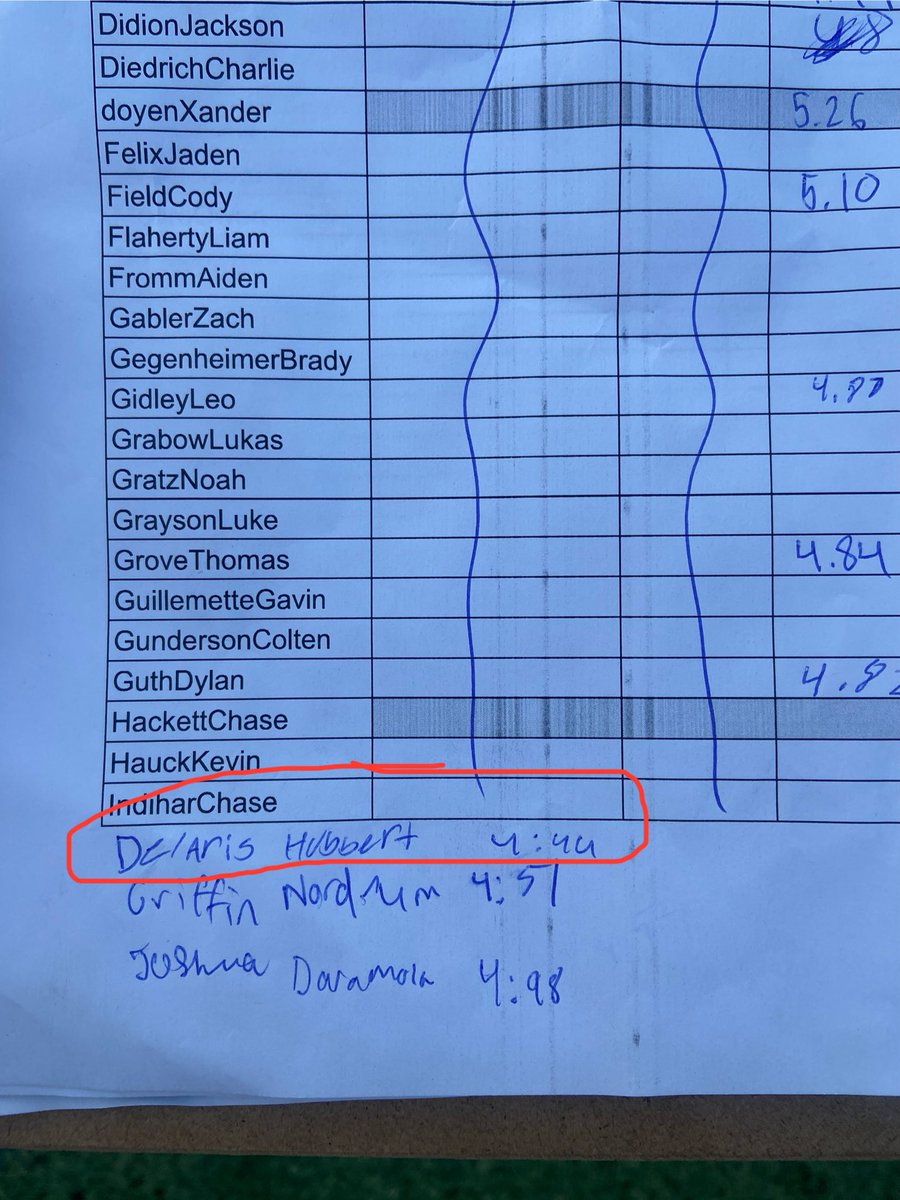 DidionJackson
DiedrichCharlie
doyenXander 5.26
FelixJaden
FieldCody 5.10
FlahertyLiam
FrommAiden
GablerZach
GegenheimerBrady
GidleyLeo
GrabowLukas
GratzNoah
GraysonLuke
GroveThomas 4.84
GuillemetteGavin
GundersonColten
GuthDylan
HackettChase
HauckKevin
IndiharChase
Delaris Hubbert 4:44
Griffin 4:51
Joshua Daramola 4:98